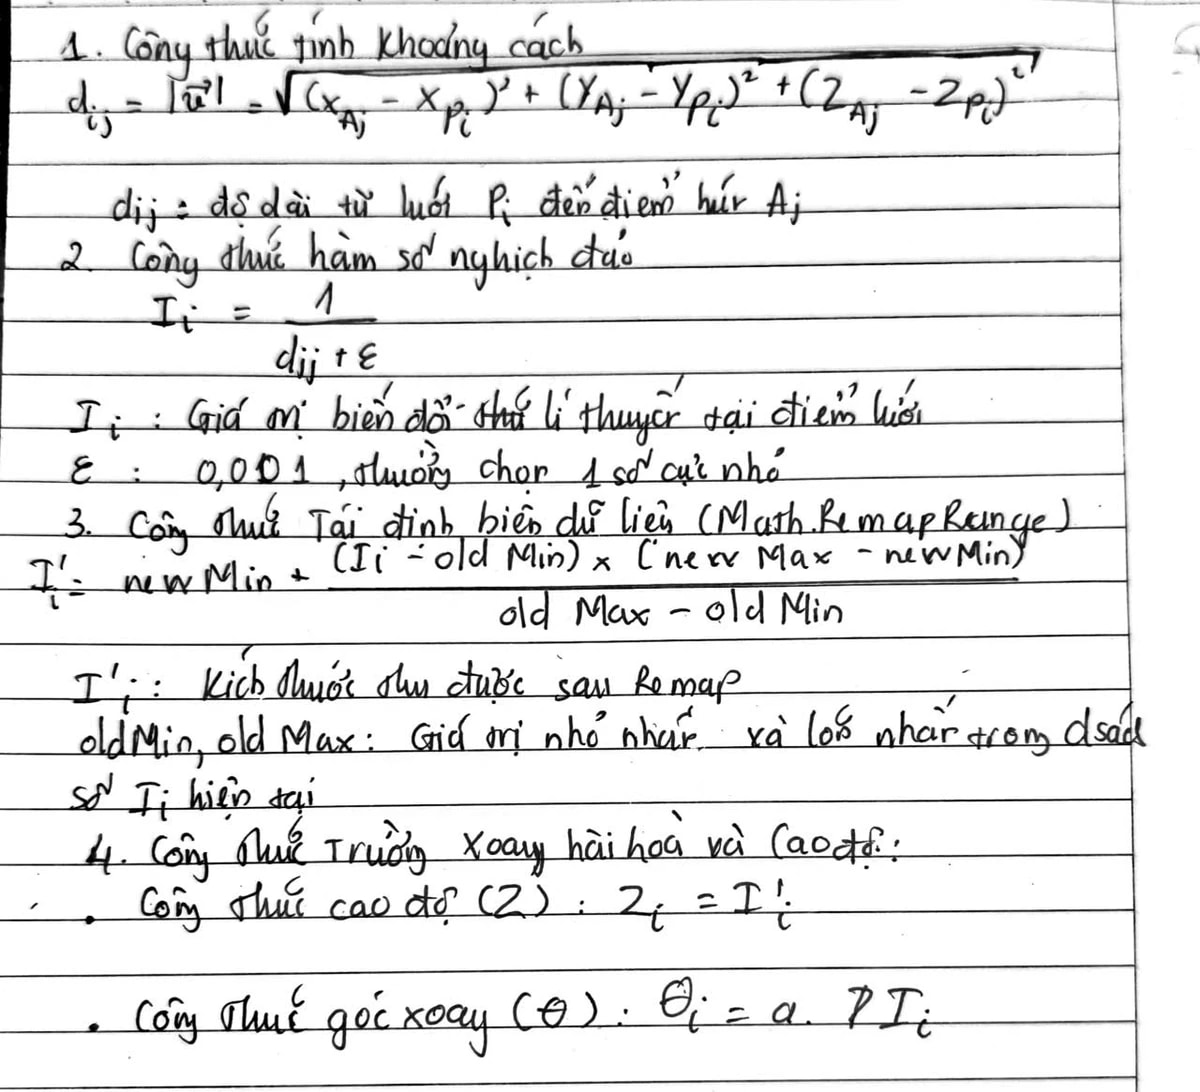 1. Công thức tính khoảng cách
d_ij = |u⃗| = √((x_Aj - x_Pi)² + (y_Aj - y_Pi)² + (z_Aj - z_Pi)²)
dij = độ dài từ lưới Pi đến điểm hút Aj
2. Công thức hàm số nghịch đảo
I_i = 1
dij + ε
I_i : Giá trị biến đổi lí thuyết tại điểm lưới
ε : 0,001, thường chọn 1 số cực nhỏ
3. Công thức Tái định biên dữ liệu (Math.RemapRange)
I'_i = new Min + (Ii - old Min) x (new Max - new Min)
old Max - old Min
I'_i : Kích thước thu được sau Remap
oldMin, old Max: Giá trị nhỏ nhất và lớn nhất trong dsách
số Ii hiện tại
4. Công thức Trường xoay hài hoà và Cao độ:
. Công thức cao độ (Z) : Z_i = I'_i
. Công thức góc xoay (θ) : θ_i = a. I_i